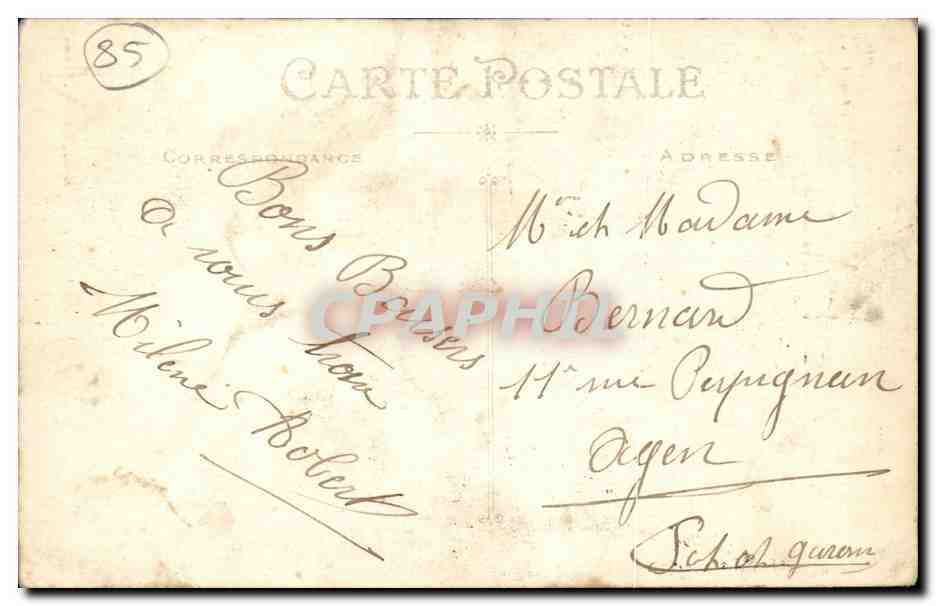 85
CARTE POSTALE
CORRESPONDANCE
ADRESSE
Bons Baisers
a vous trois
Milene Robert
Mr et Madame
Bernard
11 rue Perpignan
Agen
Lot et garonne
CPAPHIL